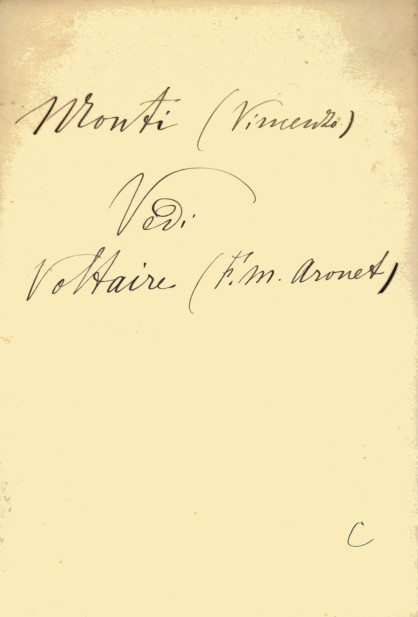 Monti (Vincenzo)
Vedi
Voltaire (F. M. Arouet)
C